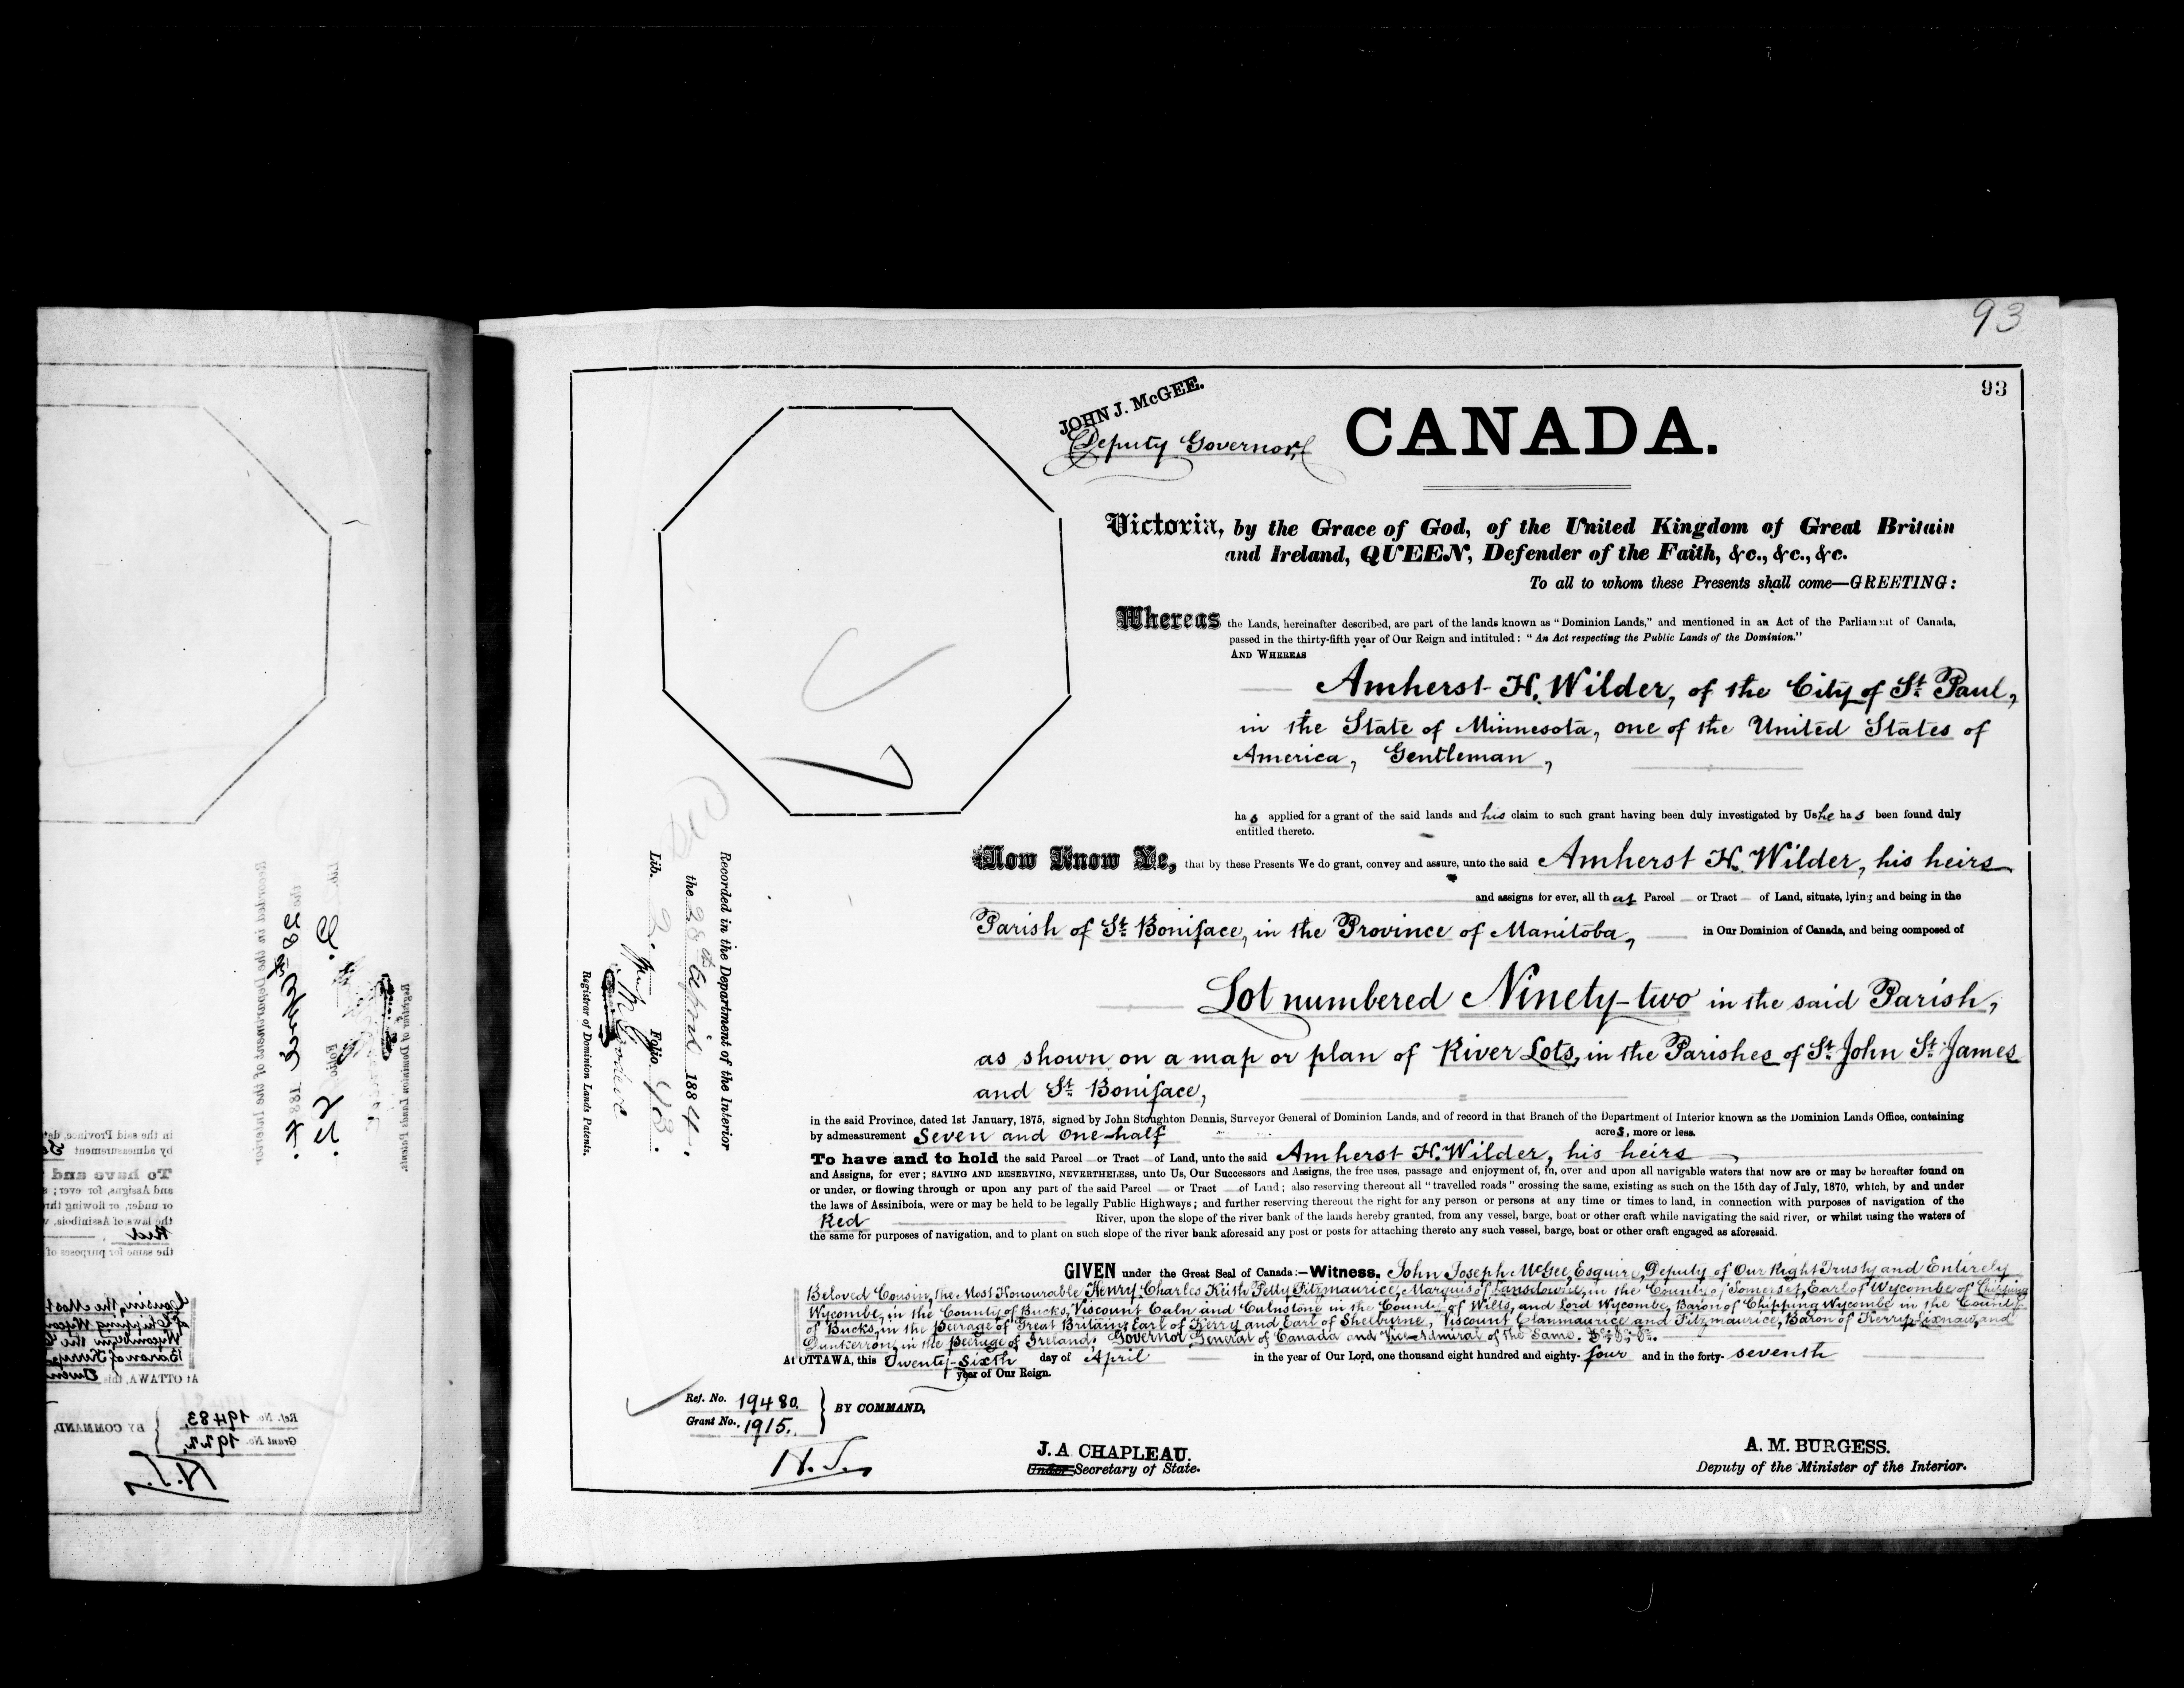 93
93
JOHN J. McGEE.
Deputy Governor,
CANADA.
Victoria, by the Grace of God, of the United Kingdom of Great Britain
and Ireland, QUEEN, Defender of the Faith, &c., &c., &c.
To all to whom these Presents shall come—GREETING:
Whereas the Lands, hereinafter described, are part of the lands known as "Dominion Lands," and mentioned in an Act of the Parliament of Canada,
passed in the thirty-fifth year of Our Reign and intituled: "An Act respecting the Public Lands of the Dominion."
AND WHEREAS
Amherst H. Wilder, of the City of St. Paul,
in the State of Minnesota, one of the United States of
America, Gentleman,
has applied for a grant of the said lands and his claim to such grant having been duly investigated by Us he has been found duly
entitled thereto.
Now Know Ye, that by these Presents We do grant, convey and assure, unto the said Amherst H. Wilder, his heirs
and assigns for ever, all that Parcel — or Tract — of Land, situate, lying and being in the
Parish of St. Boniface, in the Province of Manitoba, in Our Dominion of Canada, and being composed of
Lot numbered Ninety-two in the said Parish,
as shown on a map or plan of River Lots, in the Parishes of St. John St. James
and St. Boniface,
in the said Province, dated 1st January, 1875, signed by John Stoughton Dennis, Surveyor General of Dominion Lands, and of record in that Branch of the Department of Interior known as the Dominion Lands Office, containing
by admeasurement Seven and One-half acres, more or less.
To have and to hold the said Parcel — or Tract — of Land, unto the said Amherst H. Wilder, his heirs
and Assigns, for ever; SAVING AND RESERVING, NEVERTHELESS, unto Us, Our Successors and Assigns, the free uses, passage and enjoyment of, in, over and upon all navigable waters that now are or may be hereafter found on
or under, or flowing through or upon any part of the said Parcel — or Tract — of Land; also reserving thereout all "travelled roads" crossing the same, existing as such on the 15th day of July, 1870, which, by and under
the laws of Assiniboia, were or may be held to be legally Public Highways; and further reserving thereout the right for any person or persons at any time or times to land, in connection with purposes of navigation of the
Red River, upon the slope of the river bank of the lands hereby granted, from any vessel, barge, boat or other craft while navigating the said river, or whilst using the waters of
the same for purposes of navigation, and to plant on such slope of the river bank aforesaid any post or posts for attaching thereto any such vessel, barge, boat or other craft engaged as aforesaid.
GIVEN under the Great Seal of Canada:—Witness, John Joseph McGee, Esquire, Deputy of Our Right Trusty and Entirely
Beloved Cousin, the Most Honourable Henry Charles Keith Petty Fitzmaurice, Marquis of Lansdowne, in the County of Somerset, Earl of Wycombe of Chipping
Wycombe, in the County of Bucks, Viscount Caln and Calnstone in the County of Wilts, and Lord Wycombe, Baron of Chipping Wycombe in the County
of Bucks, in the peerage of Great Britain; Earl of Kerry and Earl of Shelburne, Viscount Clanmaurice and Fitzmaurice, Baron of Kerry, Lixnaw, and
Dunkerron, in the peerage of Ireland; Governor General of Canada and Vice-Admiral of the Same. &c., &c., &c.
At OTTAWA, this Twenty-Sixth day of April in the year of Our Lord, one thousand eight hundred and eighty-four and in the forty-seventh
year of Our Reign.
Ref. No. 19480.
Grant No. 1915.
BY COMMAND,
J. A CHAPLEAU.
Under Secretary of State.
A. M. BURGESS.
Deputy of the Minister of the Interior.
Recorded in the Department of the Interior
the 28th April 1884.
Lib. Folio 93.
Registrar of Dominion Lands Patents.
Ref. No. 19483,
Grant No. 1922,
BY COMMAND,